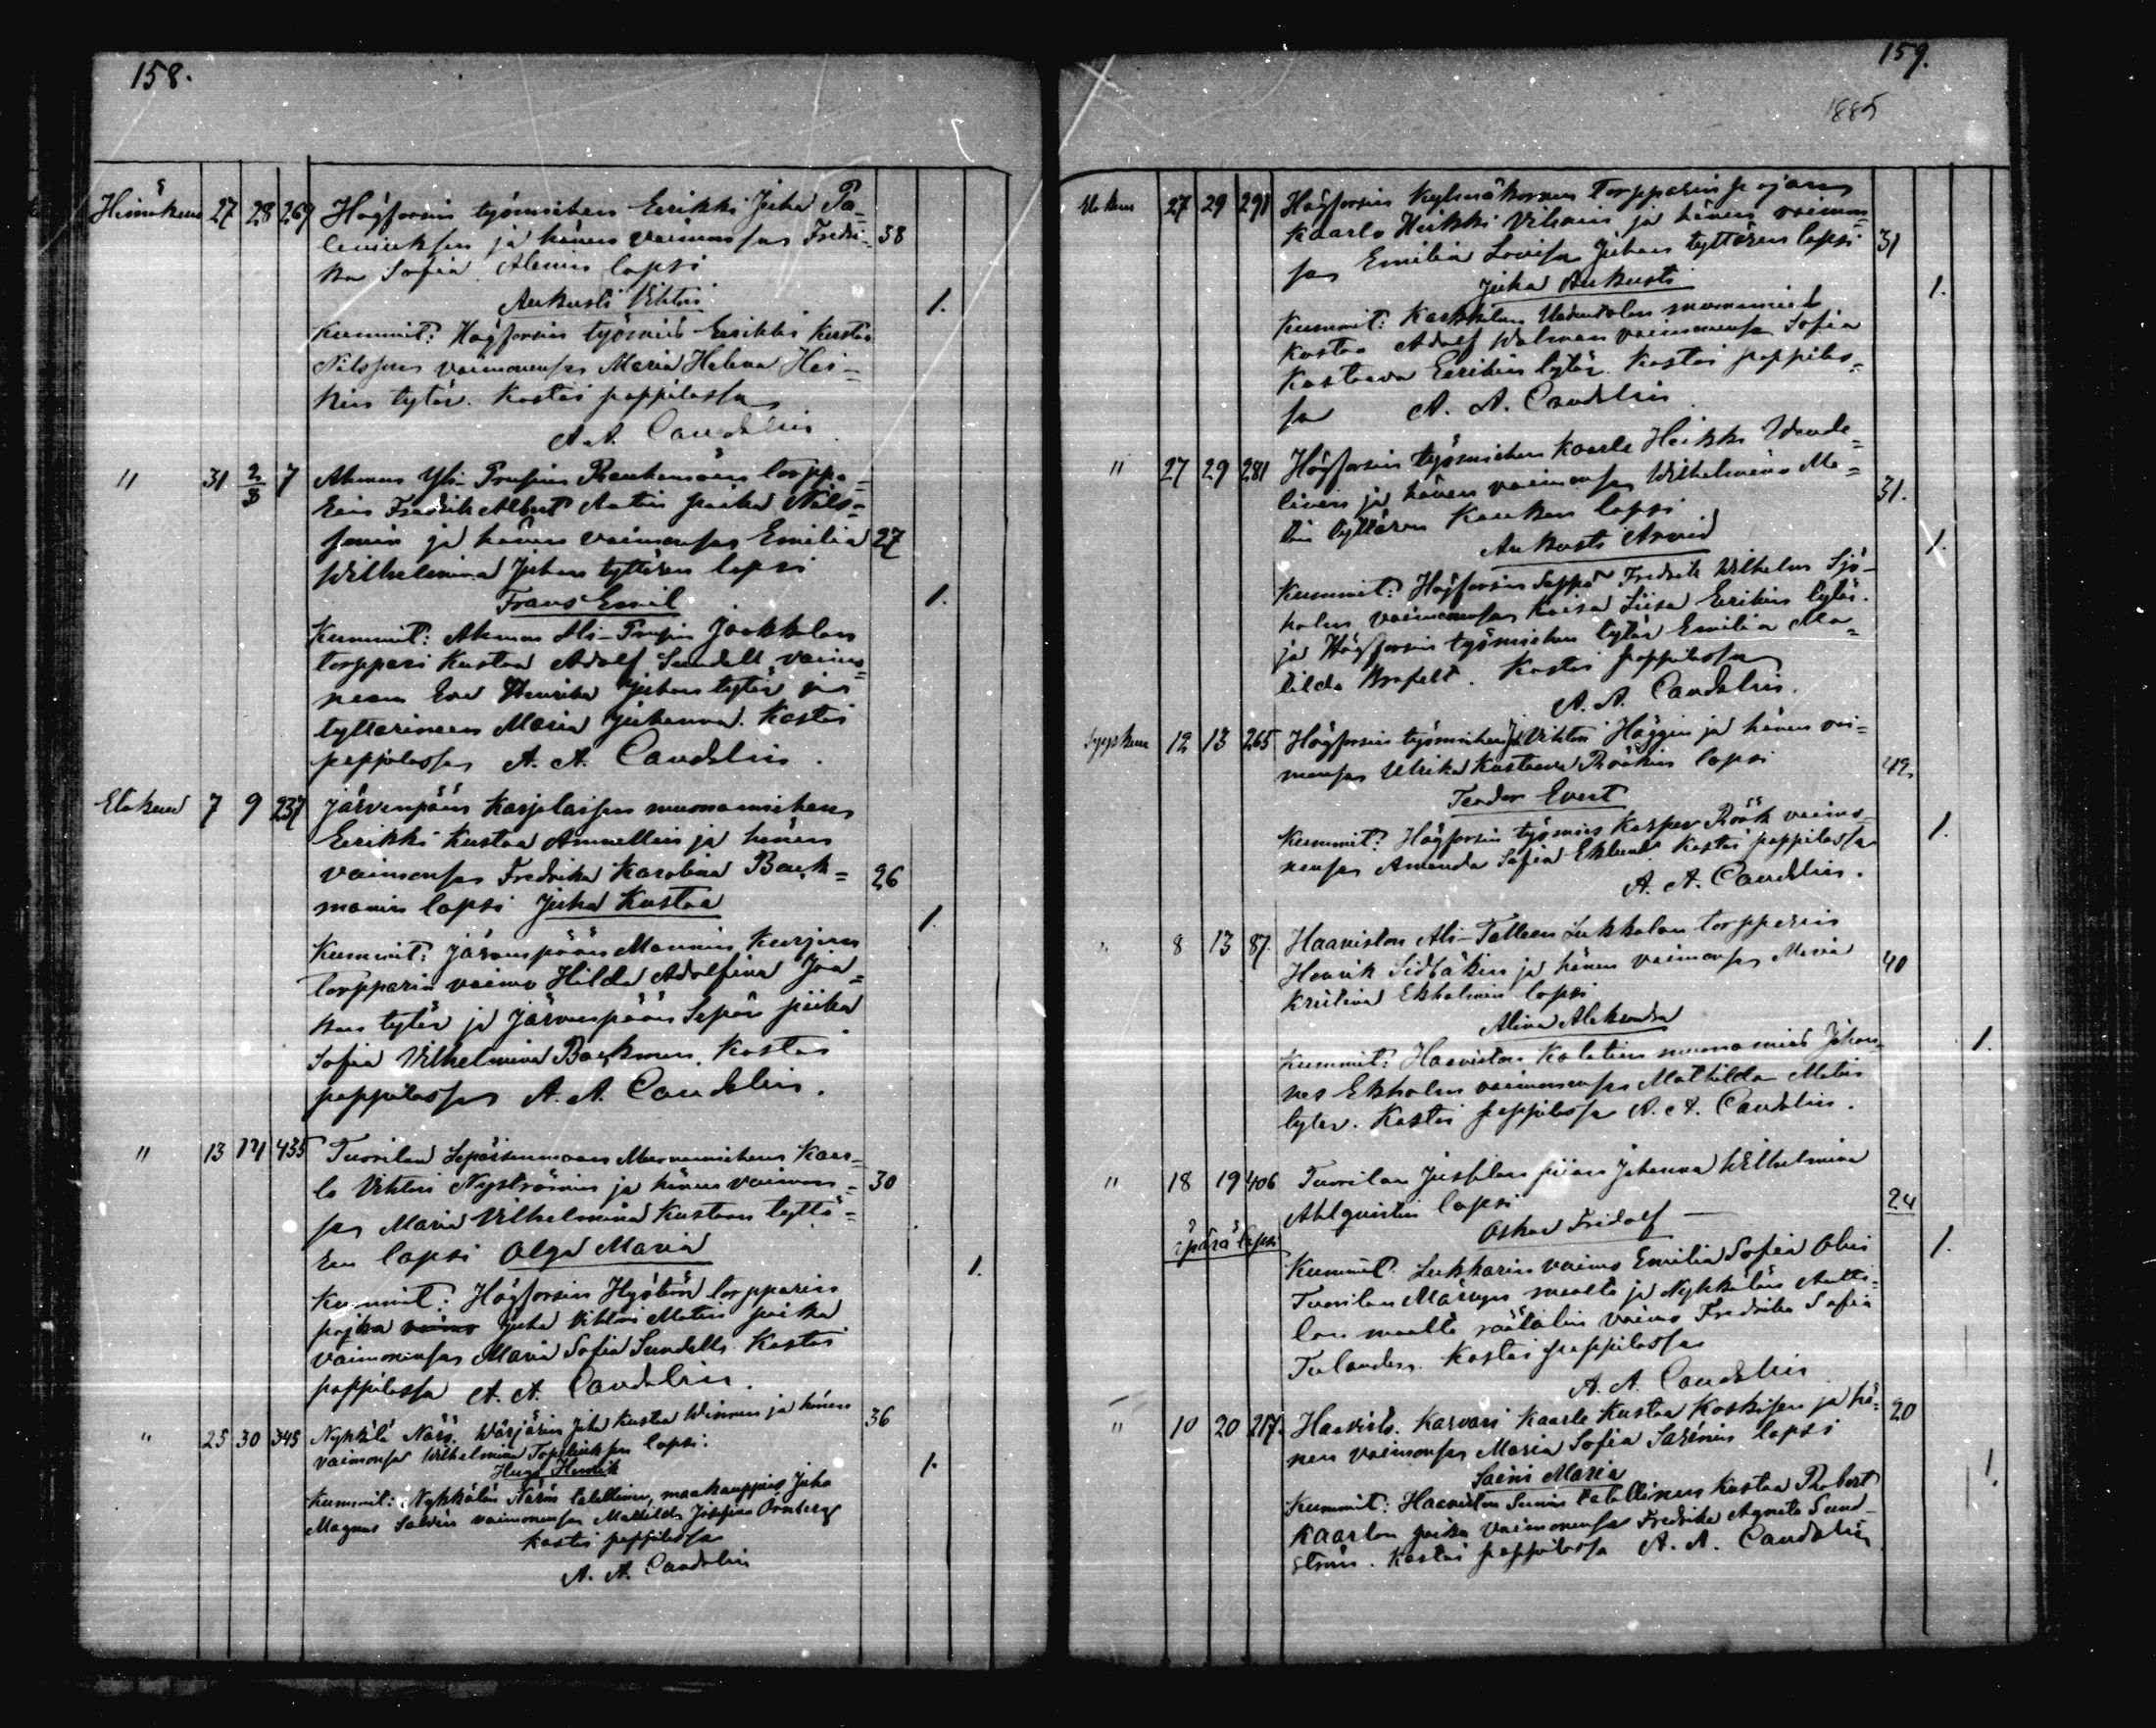 158.
Heinäkuu 27 28 269 Högforsin työmiehen Eerikki Juha Pa=
leniuksen ja hänen vaimonsa Fredri= 38
ka Sofia Alenin lapsi
Aukusti Vihtori 1.
Kummit: Högforsin työmies Eerikki Kustaa
Nilsson vaimonensa Maria Helena Hei=
kin tytär. Kastoi pappilassa
A. A. Candelin
" 31 2/8 7 Ahmon Yli-Prusin torppa=
rin Fredrik Albert Antin poika Nils=
sonin ja hänen vaimonsa Emilia 27
Wilhelmina Juhan tyttären lapsi
Frans Emil 1.
Kummit: Ahmon Ali-Prusin Jookkolan
torppari Kustaa Adolf Sundell vaimo=
neen Eva Henrika Juhan tytär ja
tyttärineen Maria Johanna. Kastoi
pappilassa A. A. Candelin.
Elokuu 7 9 237 Järvenpään Karjalaisen muonamiehen
Eerikki Kustaa Ammellin ja hänen
vaimonsa Fredrika Karolina Back= 26
manin lapsi Juha Kustaa 1.
Kummit: Järvenpään Mannin Kurjen
torpparin vaimo Hilda Adolfina Joa=
kun tytär ja Järvenpään Sepän piika
Sofia Vilhelmina Backman. Kastoi
pappilassa A. A. Candelin.
" 13 14 435 Tuorilan Muonamiehen Kaar=
lo Vihtori Nyströmin ja hänen vaimon= 30
sa Maria Vilhelmina Kustaan tyttä=
ren lapsi Olga Maria 1.
Kummit: Högforsin torpparin
pojka Juha Vihtori Matin poika
vaimonensa Maria Sofia Sundell. Kastoi
pappilassa A. A. Candelin.
" 25 30 345 Nykkälä Närö. Juha Kustaa ja hänen 36
vaimonsa Wilhelmina lapsi.
Hugo Henrik 1.
Kummit: Nykkälän Närön talollinen, maakauppias Juha
Magnus vaimonensa Mathilda Josefina Örnberg
Kastoi pappilassa
A. A. Candelin
159.
1885
Elokuu 27 29 291 Högforsin torpparin pojan
Kaarlo Heikki Vileniin ja hänen vaimon=
sa Emilia Lovisa Juhan tyttären lapsi 31
Juha Aukusti 1.
Kummit: Karkkilan muonamies
Kustaa Adolf Walman vaimonensa Sofia
Kustaava Eerikin tytär. Kastoi pappilas=
sa A. A. Candelin.
" 27 29 281 Högforsin työmiehen Kaarle Heikki Wende=
linin ja hänen vaimonsa Wilhelmina Ma= 31.
tin tyttären lapsi
Aukusti Arvid 1.
Kummit: Högforsin Seppä Fredrik Wilhelm Sjö=
holm vaimonensa Kaisa Liisa Eerikin tytär.
ja Högforsin työmiehen tytär Emilia Ma=
tilda. Kastoi pappilassa
A. A. Candelin.
Syyskuu 12 13 265 Högforsin työmiehen Vihtori Häggin ja hänen vai=
monsa Ulrika Kustaava Röökin lapsi 42
Teodor Evert
Kummit: Högforsin työmies Kasper Röök vaimo= 1.
nensa Amanda Sofia Eklund Kastoi pappilassa
A. A. Candelin.
" 8 13 87 Haaviston Ali-Talleen Lukkolan torpparin
Henrik Sidbäkin ja hänen vaimonsa Maria 40
Kristina Ekholmin lapsi
Alina Aleksandra 1.
Kummit: Haaviston muonamies Johan=
nes Ekholm vaimonensa Mathilda Matin
tytär. Kastoi pappilassa A. A. Candelin.
" 18 19 406 Tuorilan Jussilan piian Johanna Wilhelmina
Ahlqvistin lapsi 24
äpärä lapsi Oskar Fridolf 1.
Kummit: Lukkarin vaimo Emilia Sofia
Tuorilan maalta ja Nykkälän Antti=
lan maalta räätälin vaimo Fredrika Sofia
Tulander. Kastoi pappilassa
A. A. Candelin
" 10 20 217. Haavisto. Karvari Kaarle Kustaa Koskisen ja hä= 20
nen vaimonsa Maria Sofia lapsi
Saini Maria 1.
Kummit: Haaviston talollinen Kustaa Robert
Kaarlon poika vaimonensa Fredrika Agneta Sund=
ström. Kastoi pappilassa A. A. Candelin